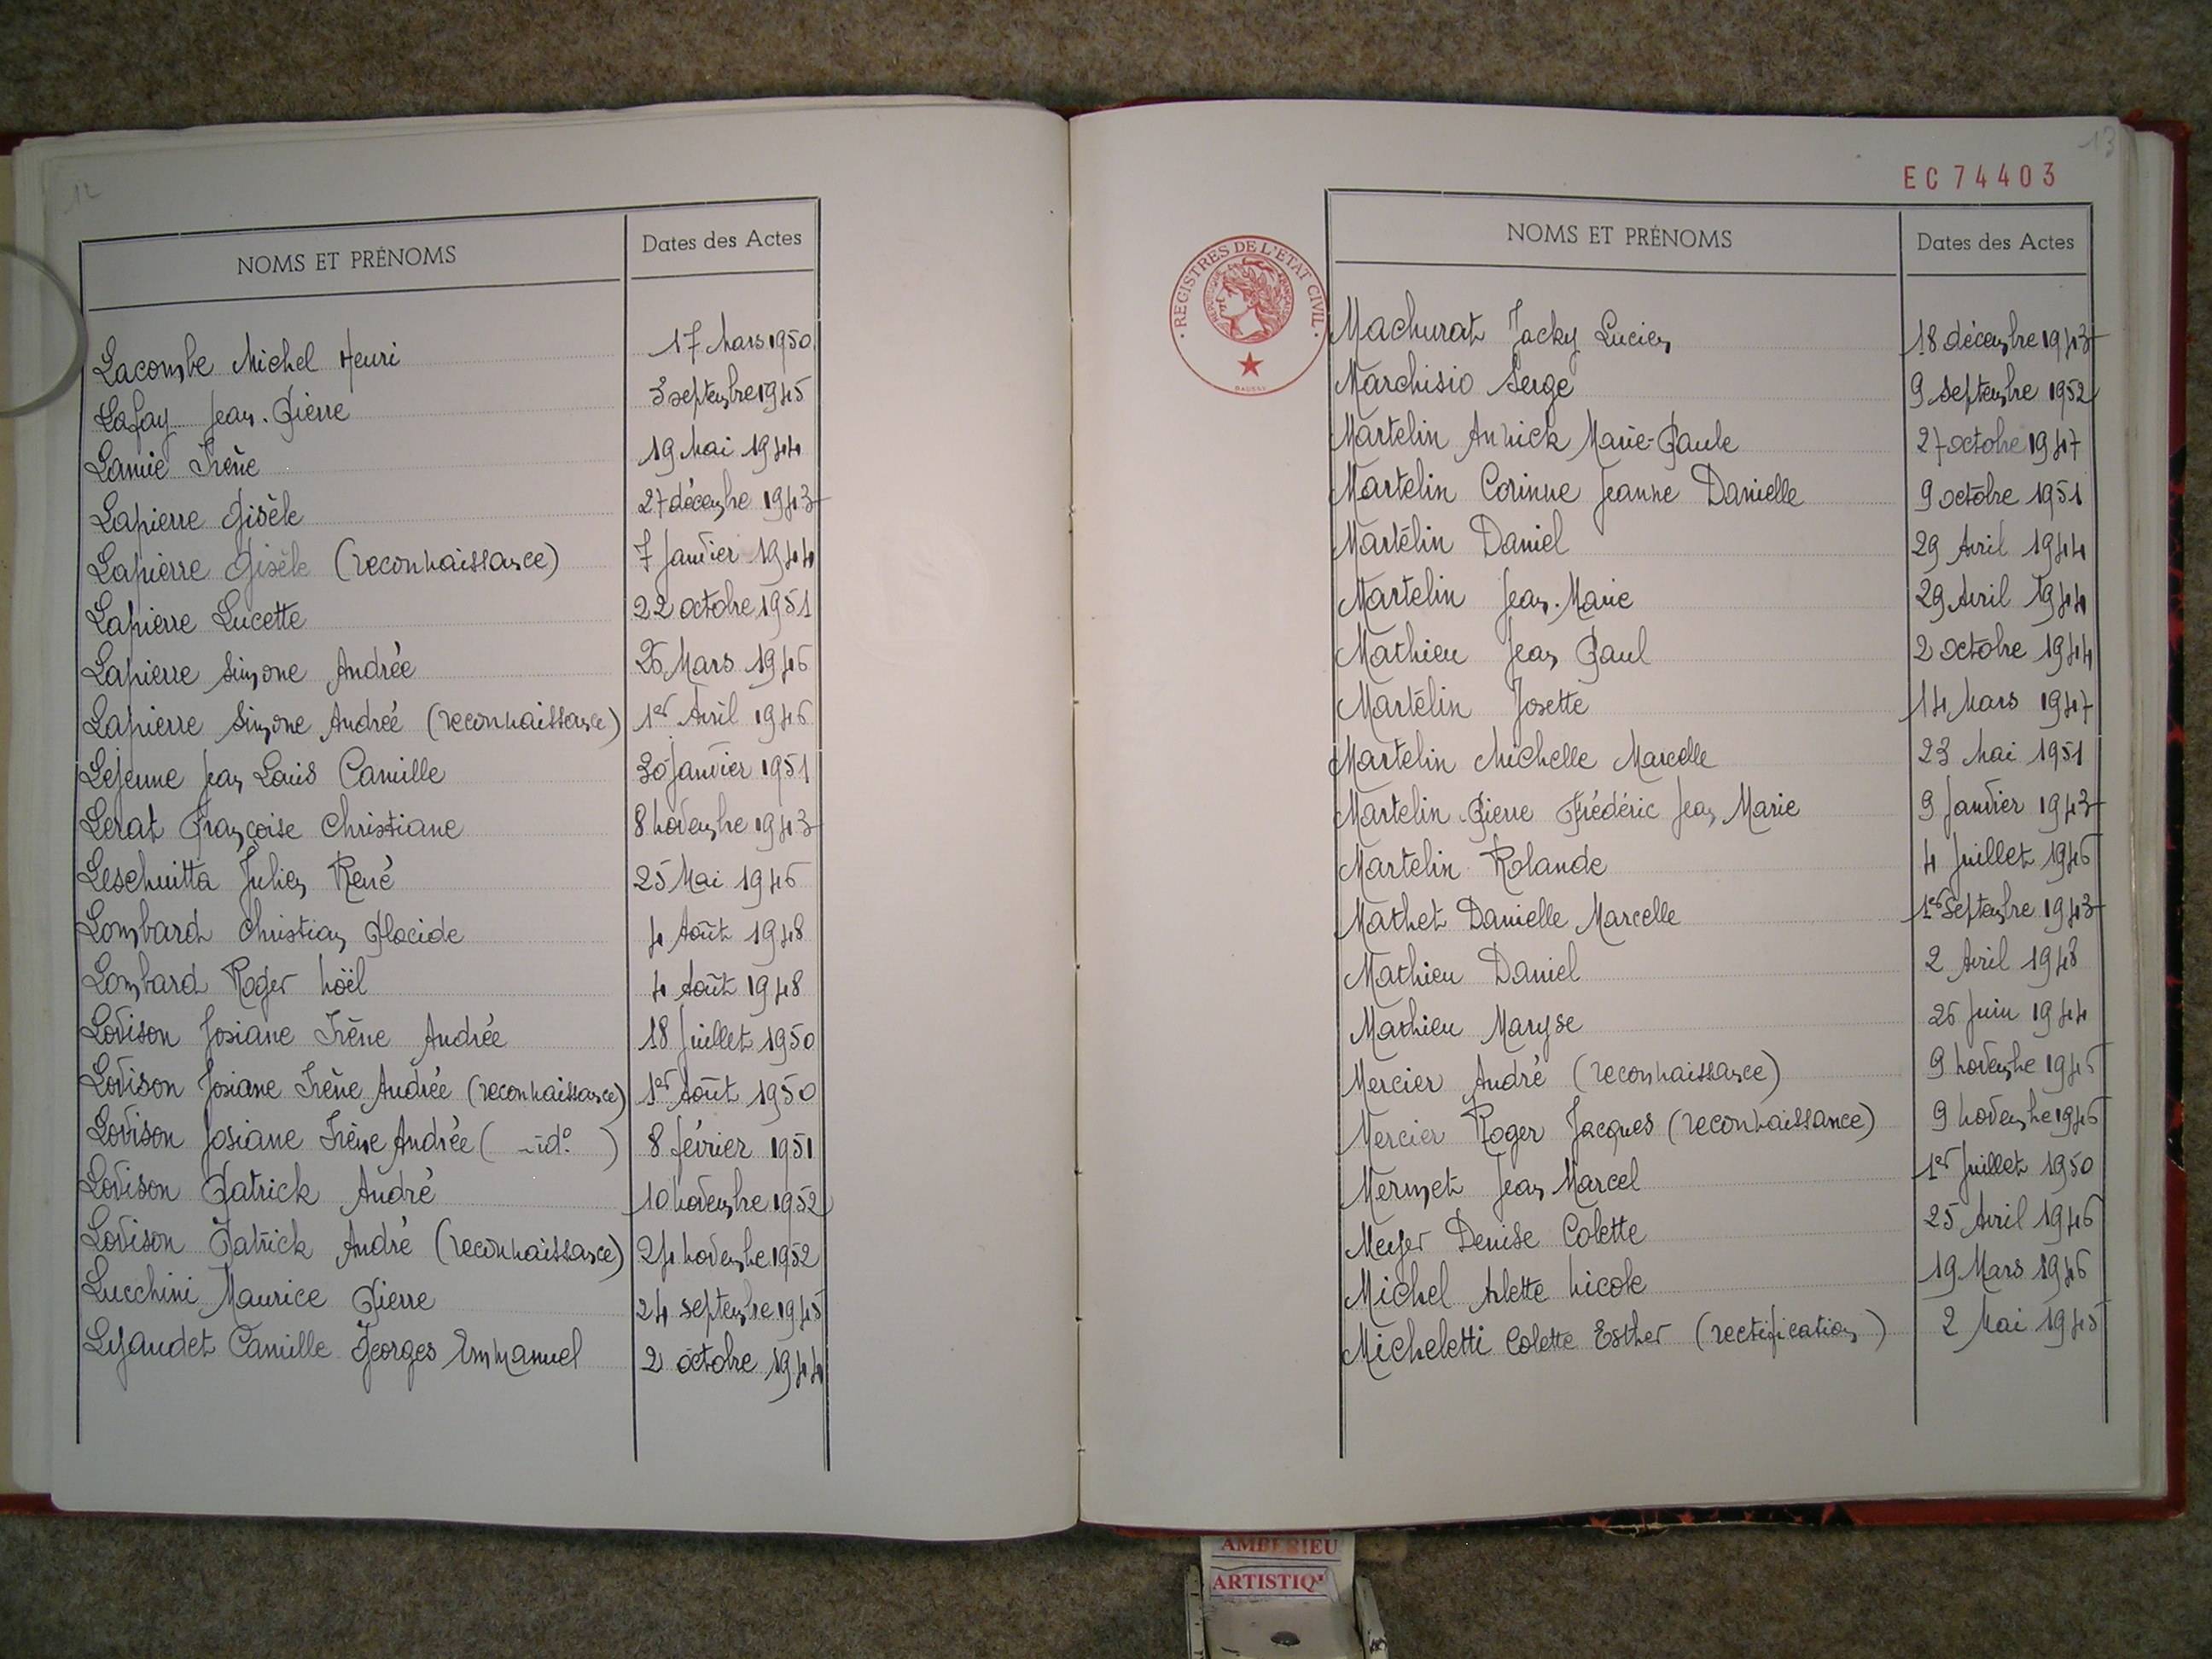 12
NOMS ET PRÉNOMS Dates des Actes
Lacombe Michel Henri 17 Mars 1950
Lafay Jean-Pierre 3 septembre 1945
Lamie Irène 19 Mai 1944
Lapierre Gisèle 27 décembre 1943
Lapierre Gisèle (reconnaissance) 7 Janvier 1944
Lapierre Lucette 22 octobre 1951
Lapierre Simone Andrée 26 Mars 1946
Lapierre Simone Andrée (reconnaissance) 1er Avril 1946
Lejeune Jean Louis Camille 30 Janvier 1951
Lerat Françoise Christiane 8 Novembre 1943
Leschuitta Julien René 25 Mai 1946
Lombard Christian Placide 4 Août 1948
Lombard Roger Noël 4 Août 1948
Lovison Josiane Irène Andrée 18 Juillet 1950
Lovison Josiane Irène Andrée (reconnaissance) 1er Août 1950
Lovison Josiane Irène Andrée ( -id°- ) 8 février 1951
Lovison Patrick André 10 Novembre 1952
Lovison Patrick André (reconnaissance) 24 Novembre 1952
Lucchini Maurice Pierre 24 septembre 1945
Lyaudet Camille Georges Emmanuel 2 octobre 1944
13
EC 74403
REGISTRES DE L'ETAT CIVIL
NOMS ET PRÉNOMS Dates des Actes
Machurat Jacky Lucien 18 décembre 1943
Marchisio Serge 9 septembre 1952
Martelin Annick Marie-Paule 27 octobre 1947
Martelin Corinne Jeanne Danielle 9 octobre 1951
Martelin Daniel 29 Avril 1944
Martelin Jean-Marie 29 Avril 1944
Mathieu Jean Paul 2 octobre 1944
Martelin Josette 14 Mars 1947
Martelin Michelle Marcelle 23 Mai 1951
Martelin Pierre Frédéric Jean Marie 9 Janvier 1943
Martelin Rolande 4 Juillet 1946
Mathet Danielle Marcelle 1er Septembre 1943
Mathieu Daniel 2 Avril 1948
Mathieu Maryse 26 Juin 1944
Mercier André (reconnaissance) 9 Novembre 1946
Mercier Roger Jacques (reconnaissance) 9 Novembre 1946
Mermet Jean Marcel 1er Juillet 1950
Meyer Denise Colette 25 Avril 1946
Michel Arlette Nicole 19 Mars 1946
Micheletti Colette Esther (rectification) 2 Mai 1945
AMBERIEU
ARTISTIQ